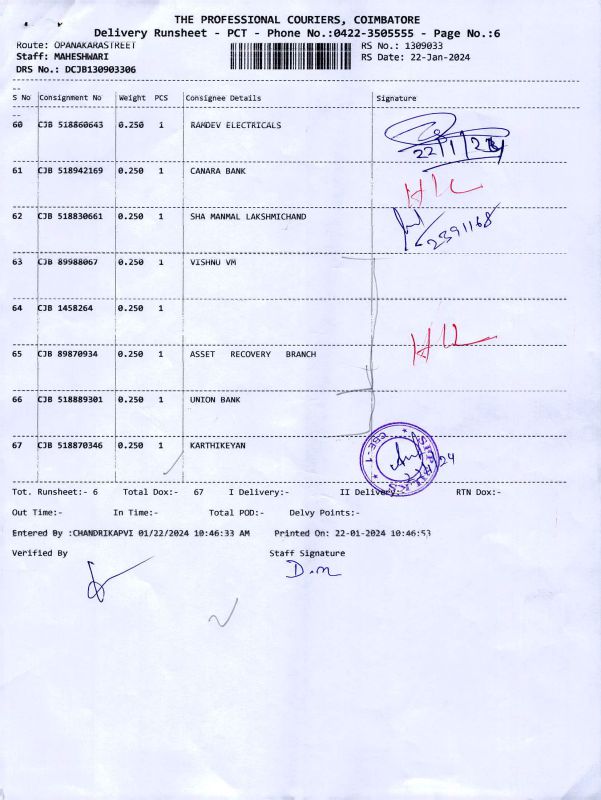 THE PROFESSIONAL COURIERS, COIMBATORE
Delivery Runsheet - PCT - Phone No.:0422-3505555 - Page No.:6
Route: OPANAKARASTREET RS No.: 1309033
Staff: MAHESHWARI RS Date: 22-Jan-2024
DRS No.: DCJB130903306
S No Consignment No Weight PCS Consignee Details Signature
60 CJB 518860643 0.250 1 RAMDEV ELECTRICALS
22/1/24
61 CJB 518942169 0.250 1 CANARA BANK
62 CJB 518830661 0.250 1 SHA MANMAL LAKSHMICHAND
2391168
63 CJB 89988067 0.250 1 VISHNU VM
64 CJB 1458264 0.250 1
65 CJB 89870934 0.250 1 ASSET RECOVERY BRANCH
66 CJB 518889301 0.250 1 UNION BANK
67 CJB 518870346 0.250 1 KARTHIKEYAN
CBE-1
Tot. Runsheet:- 6 Total Dox:- 67 I Delivery:- II Delivery:- RTN Dox:-
Out Time:- In Time:- Total POD:- Delvy Points:-
Entered By :CHANDRIKAPVI 01/22/2024 10:46:33 AM Printed On: 22-01-2024 10:46:53
Verified By Staff Signature
D.m